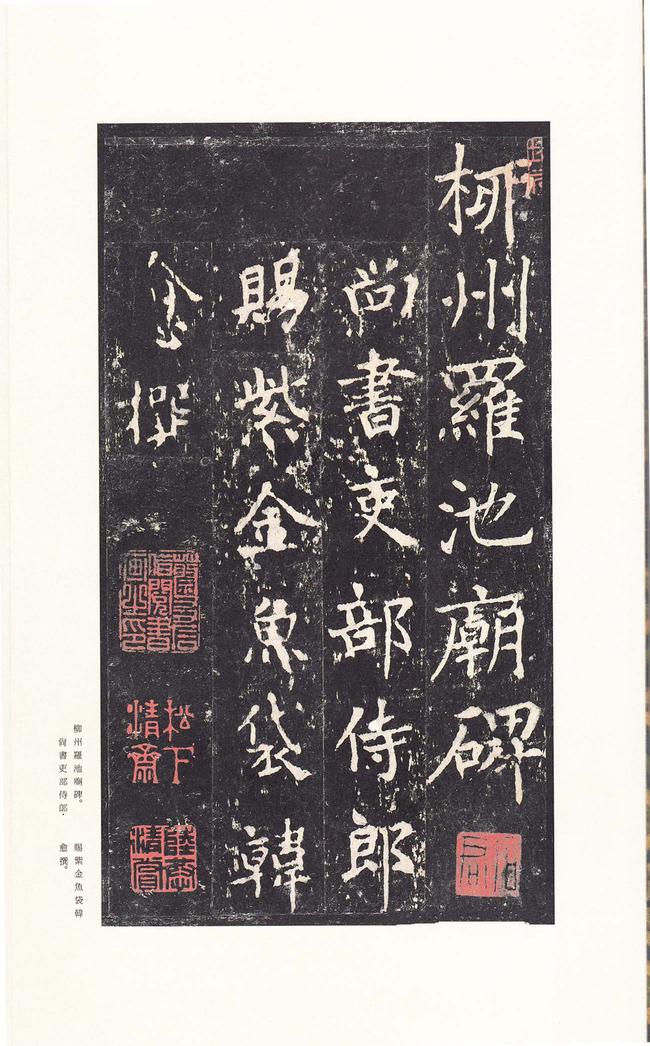 柳州羅池廟碑
尚書吏部侍郎
賜紫金魚袋韓
愈撰
松下
清齋
陸恭
清賞
柳州羅池廟碑。
尚書吏部侍郎·
賜紫金魚袋韓
愈撰。